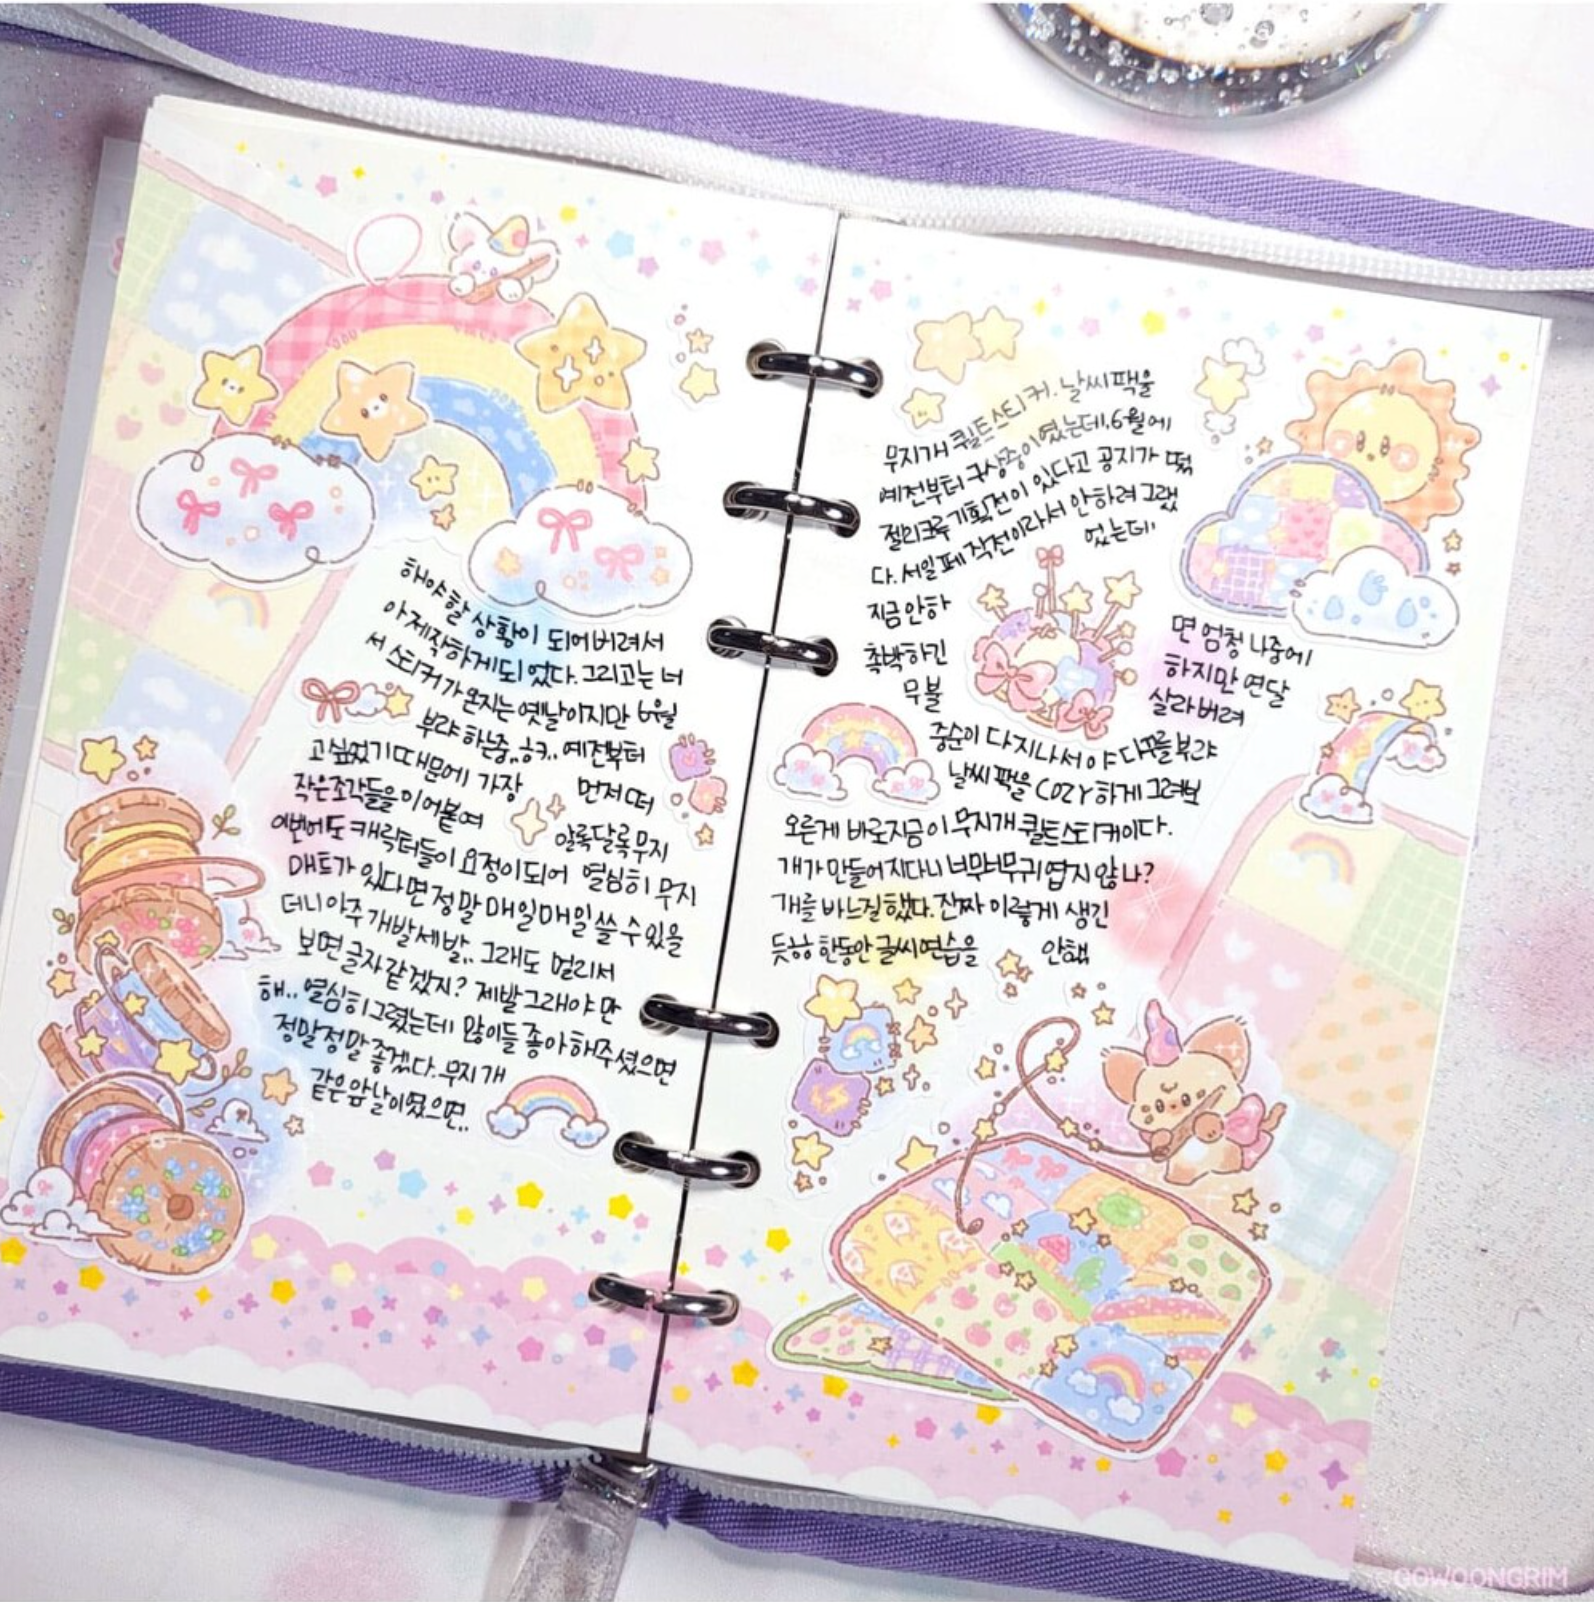 해야할 상황이 되어버려서
아 제작하게 되었다. 그리고는 너
서 스티커가 온지는 옛날이지만 6월
부랴 하는중,, ㅎㅋ.. 예전부터
고 싶었기 때문에 가장 먼저 떠
작은조각들을 이어붙여 알록달록 무지
이번에도 캐릭터들이 요정이 되어 열심히 무지
매트가 있다면 정말 매일매일 쓸 수 있을
더니 아주 개발세발,, 그래도 멀리서
보면 글자 같겠지? 제발 그래야만
해.. 열심히 그렸는데 많이들 좋아해주셨으면
정말정말 좋겠다. 무지개
같은 앞날이였으면..
무지개 퀼트스티커. 날씨팩을
예전부터 구상중이였는데, 6월에
젤리크루 기획전이 있다고 공지가 떴
다. 서일페 직전이라서 안하려 그랬
었는데,
지금 안하면 엄청 나중에
촉박하긴 하지만 연달
무불 살라버려
중순이 다 지나서야 다꾸를 부랴
날씨팩을 COZY하게 그려보
오른게 바로 지금 이 무지개 퀼트스티커이다.
개가 만들어지다니 너무너무 귀엽지 않나?
개를 바느질했다. 진짜 이렇게 생긴
듯ㅎㅎ 한동안 글씨연습을 안했
GOWOONGRIM